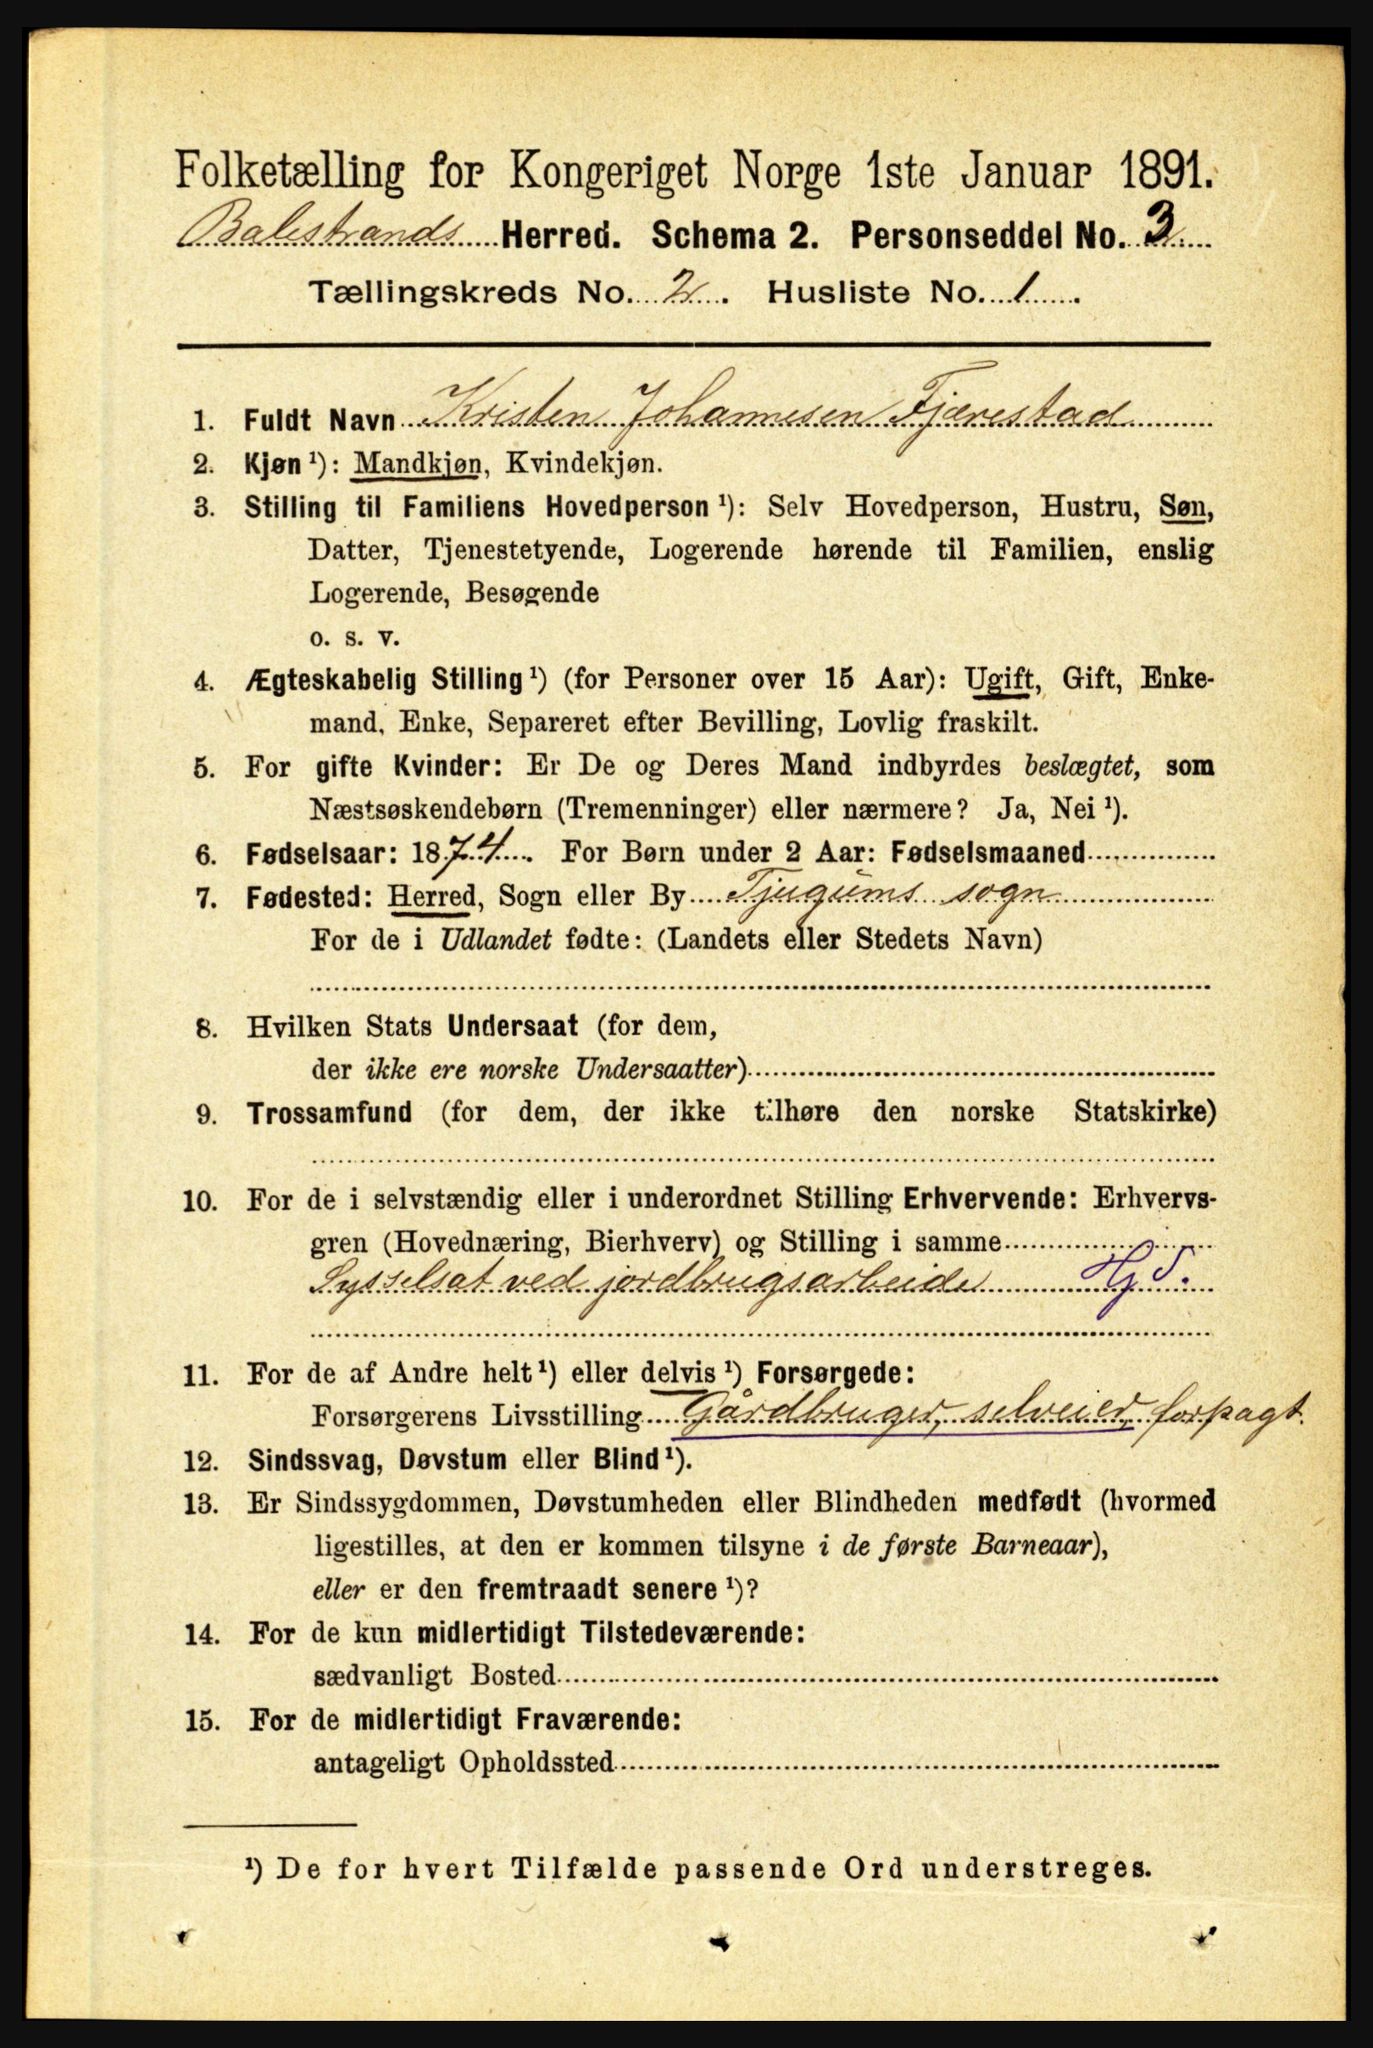 Folketælling for Kongeriget Norge 1ste Januar 1891.
Balestrands Herred. Schema 2. Personseddel No. 3
Tællingskreds No. 2. Husliste No. 1.
1. Fuldt Navn Kristen Johannesen Fjærestad
2. Kjøn ¹): Mandkjøn, Kvindekjøn.
3. Stilling til Familiens Hovedperson ¹): Selv Hovedperson, Hustru, Søn,
Datter, Tjenestetyende, Logerende hørende til Familien, enslig
Logerende, Besøgende
o. s. v.
4. Ægteskabelig Stilling ¹) (for Personer over 15 Aar): Ugift, Gift, Enke-
mand, Enke, Separeret efter Bevilling, Lovlig fraskilt.
5. For gifte Kvinder: Er De og Deres Mand indbyrdes beslægtet, som
Næstsøskendebørn (Tremenninger) eller nærmere? Ja, Nei ¹).
6. Fødselsaar: 1874. For Børn under 2 Aar: Fødselsmaaned
7. Fødested: Herred, Sogn eller By Tjugums sogn
For de i Udlandet fødte: (Landets eller Stedets Navn)
8. Hvilken Stats Undersaat (for dem,
der ikke ere norske Undersaatter)
9. Trossamfund (for dem, der ikke tilhøre den norske Statskirke)
10. For de i selvstændig eller i underordnet Stilling Erhvervende: Erhvervs-
gren (Hovednæring, Bierhverv) og Stilling i samme
Sysselsat ved jordbrugsarbeide HjS.
11. For de af Andre helt ¹) eller delvis ¹) Forsørgede:
Forsørgerens Livsstilling Gårdbruger, selveier, forpagt.
12. Sindssvag, Døvstum eller Blind ¹).
13. Er Sindssygdommen, Døvstumheden eller Blindheden medfødt (hvormed
ligestilles, at den er kommen tilsyne i de første Barneaar),
eller er den fremtraadt senere ¹)?
14. For de kun midlertidigt Tilstedeværende:
sædvanligt Bosted
15. For de midlertidigt Fraværende:
antageligt Opholdssted
¹) De for hvert Tilfælde passende Ord understreges.